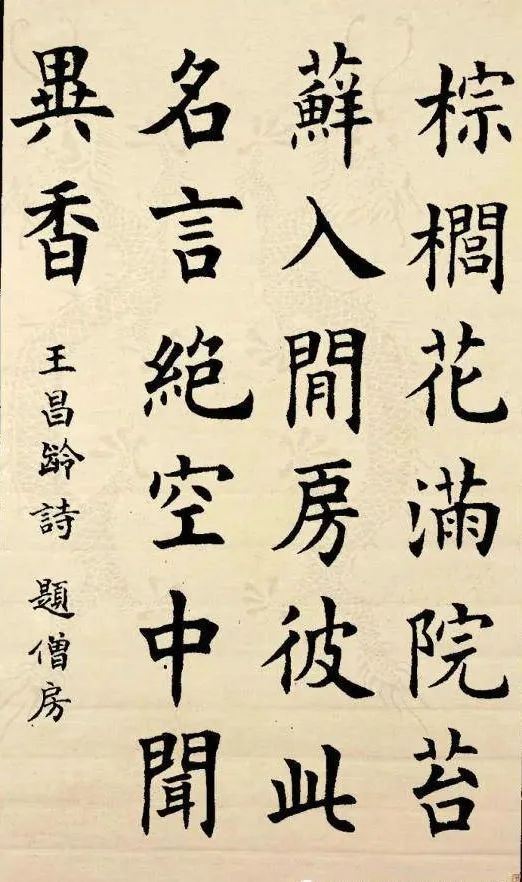 棕櫚花滿院苔
蘚入閒房彼此
名言絕空中聞
異香
王昌齡詩 題僧房